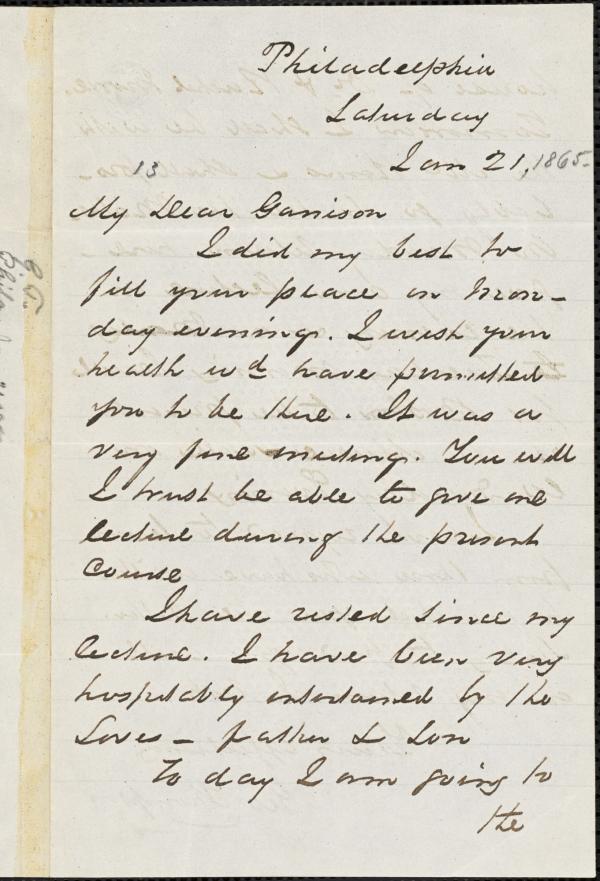 Philadelphia
Saturday
Jan 21, 1865-
13
My Dear Garrison
I did my best to
fill your place on Mon-
day evening. I wish your
health wd have permitted
you to be there. It was a
very fine meeting. You will
I trust be able to give one
lecture during the present
course
I have rested since my
lecture. I have been very
hospitably entertained by the
Loves - father & Son
To day I am going to
the